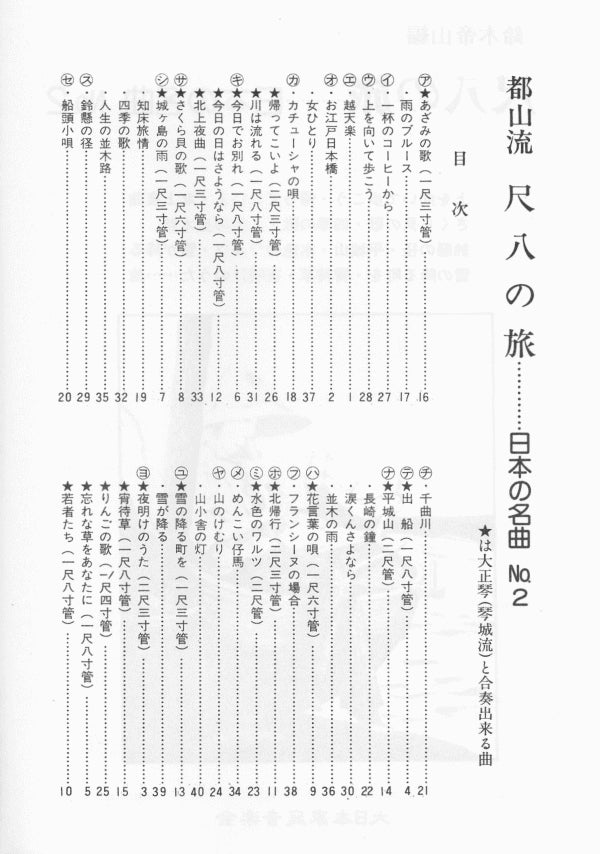 都山流 尺八の旅………日本の名曲 No.2
★は大正琴(琴城流)と合奏出来る曲
目次
㋐★あざみの歌(一尺三寸管)……16
・雨のブルース……17
㋑・一杯のコーヒーから……27
㋒・上を向いて歩こう……28
㋓・越天楽……1
㋔・お江戸日本橋……2
・女ひとり……37
㋕・カチューシャの唄……18
★帰ってこいよ(二尺三寸管)……26
★川は流れる(一尺八寸管)……31
㋖★今日でお別れ(一尺八寸管)……6
★今日の日はさようなら(一尺八寸管)……12
★北上夜曲(一尺三寸管)……33
㋚★さくら貝の歌(一尺六寸管)……8
㋛★城ヶ島の雨(一尺三寸管)……7
・知床旅情……19
・四季の歌……32
・人生の並木路……35
㋜・鈴懸の径……29
㋝・船頭小唄……20
㋠・千曲川……21
㋢★出船(一尺八寸管)……4
㋤★平城山(二尺管)……14
・長崎の鐘……22
・涙くんさよなら……30
・並木の雨……36
㋩★花言葉の唄(一尺六寸管)……9
㋫・フランシーヌの場合……38
㋭★北帰行(二尺三寸管)……11
㋯★水色のワルツ(二尺管)……23
㋱・めんこい仔馬……34
㋳・山のけむり……24
・山小舎の灯……40
㋴★雪の降る町を(一尺三寸管)……13
・雪が降る……39
㋵★夜明けのうた(二尺三寸管)……3
★宵待草(一尺八寸管)……15
★りんごの歌(一尺四寸管)……25
★忘れな草をあなたに(一尺八寸管)……5
★若者たち(一尺八寸管)……10